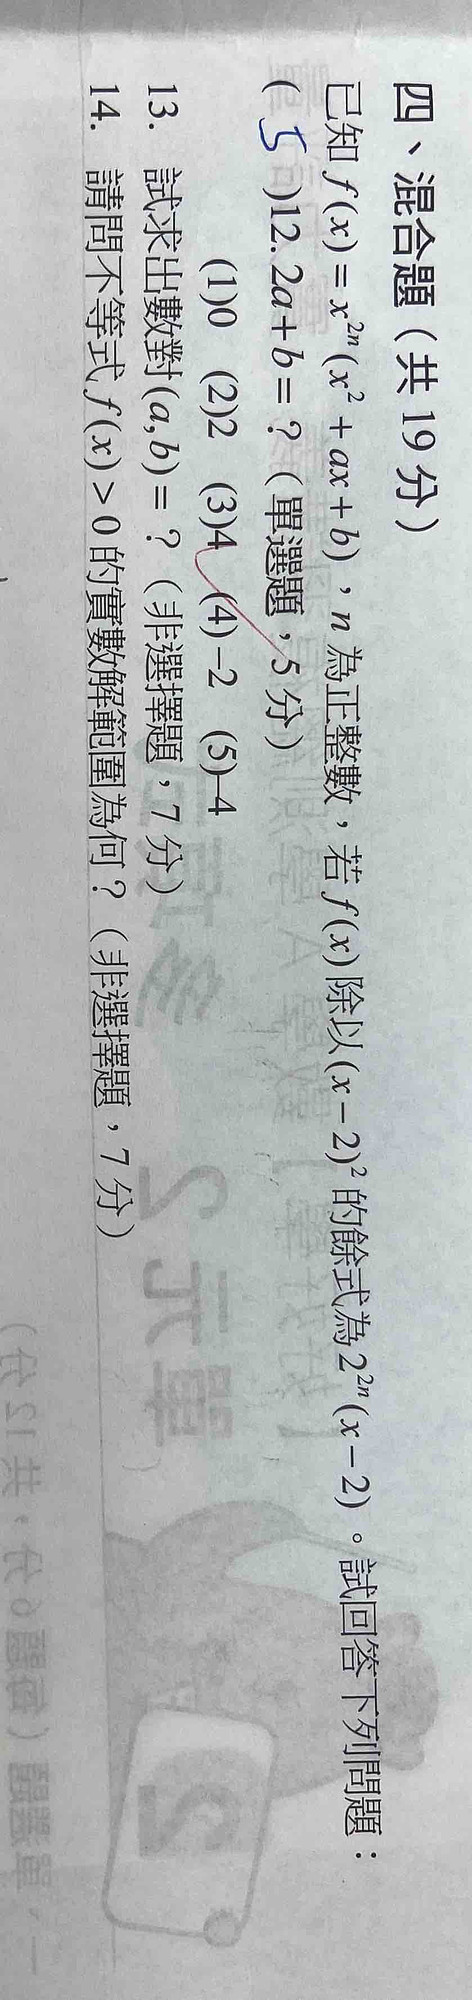 四、混合題（共 19 分）
已知 f(x) = x²ⁿ(x² + ax + b)，n 為正整數，若 f(x) 除以 (x − 2)² 的餘式為 2²ⁿ(x − 2)。試回答下列問題：
( 5 )12. 2a + b = ？（單選題，5 分）
(1)0 (2)2 (3)4 (4)−2 (5)−4
13. 試求出數對 (a, b) = ？（非選擇題，7 分）
14. 請問不等式 f(x) > 0 的實數解範圍為何？（非選擇題，7 分）